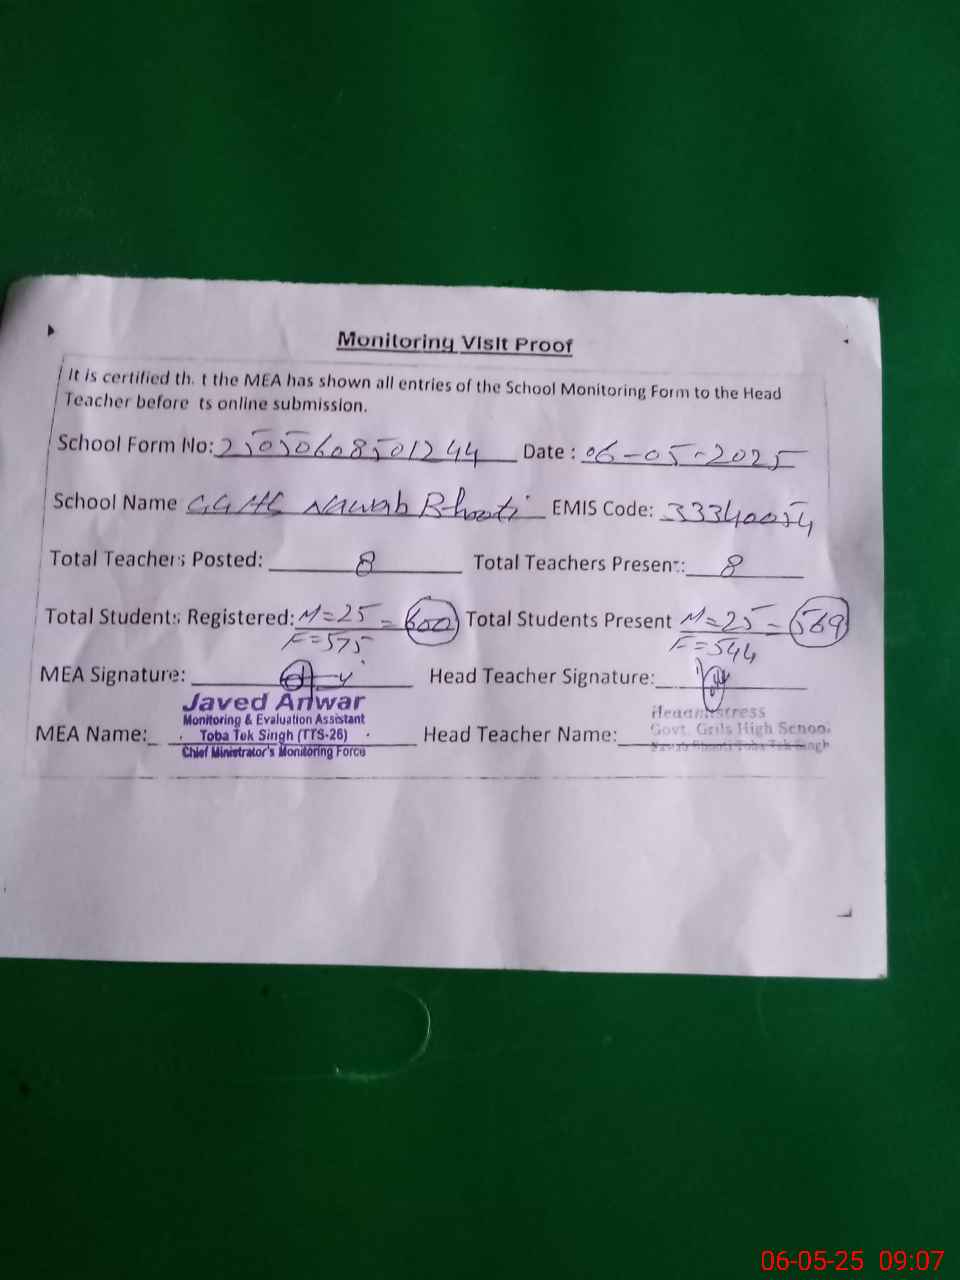 Monitoring Visit Proof
It is certified th. t the MEA has shown all entries of the School Monitoring Form to the Head
Teacher before ts online submission.
School Form No: 25050608501244 Date : 06-05-2025
School Name GGHS Nawab Bhooti EMIS Code: 33340054
Total Teachers Posted: 8 Total Teachers Present: 8
Total Students Registered: M=25 = 600 Total Students Present M=25 = 569
F=575 F=544
MEA Signature: Head Teacher Signature:
Javed Anwar
Monitoring & Evaluation Assistant Headmistress
MEA Name: Toba Tek Singh (TTS-26) Head Teacher Name: Govt. Grils High School
Chief Ministrator's Monitoring Force Nawab Bhooti Toba Tek Singh
06-05-25 09:07